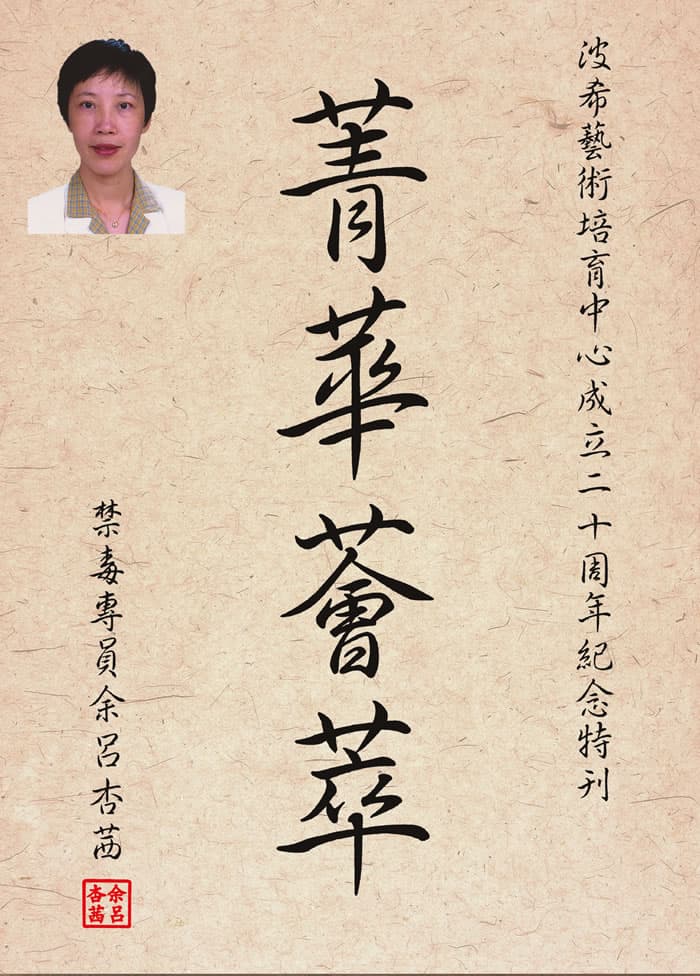 波希藝術培育中心成立二十周年紀念特刊
菁華薈萃
禁毒專員余呂杏茜
余呂
杏茜